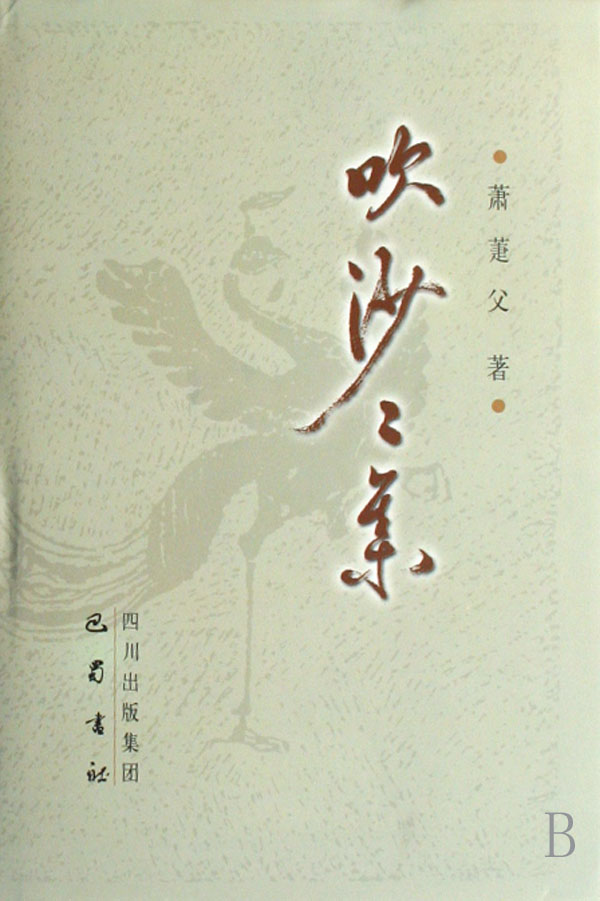 萧萐父 著
吹沙二集
四川出版集团
巴蜀書社
B